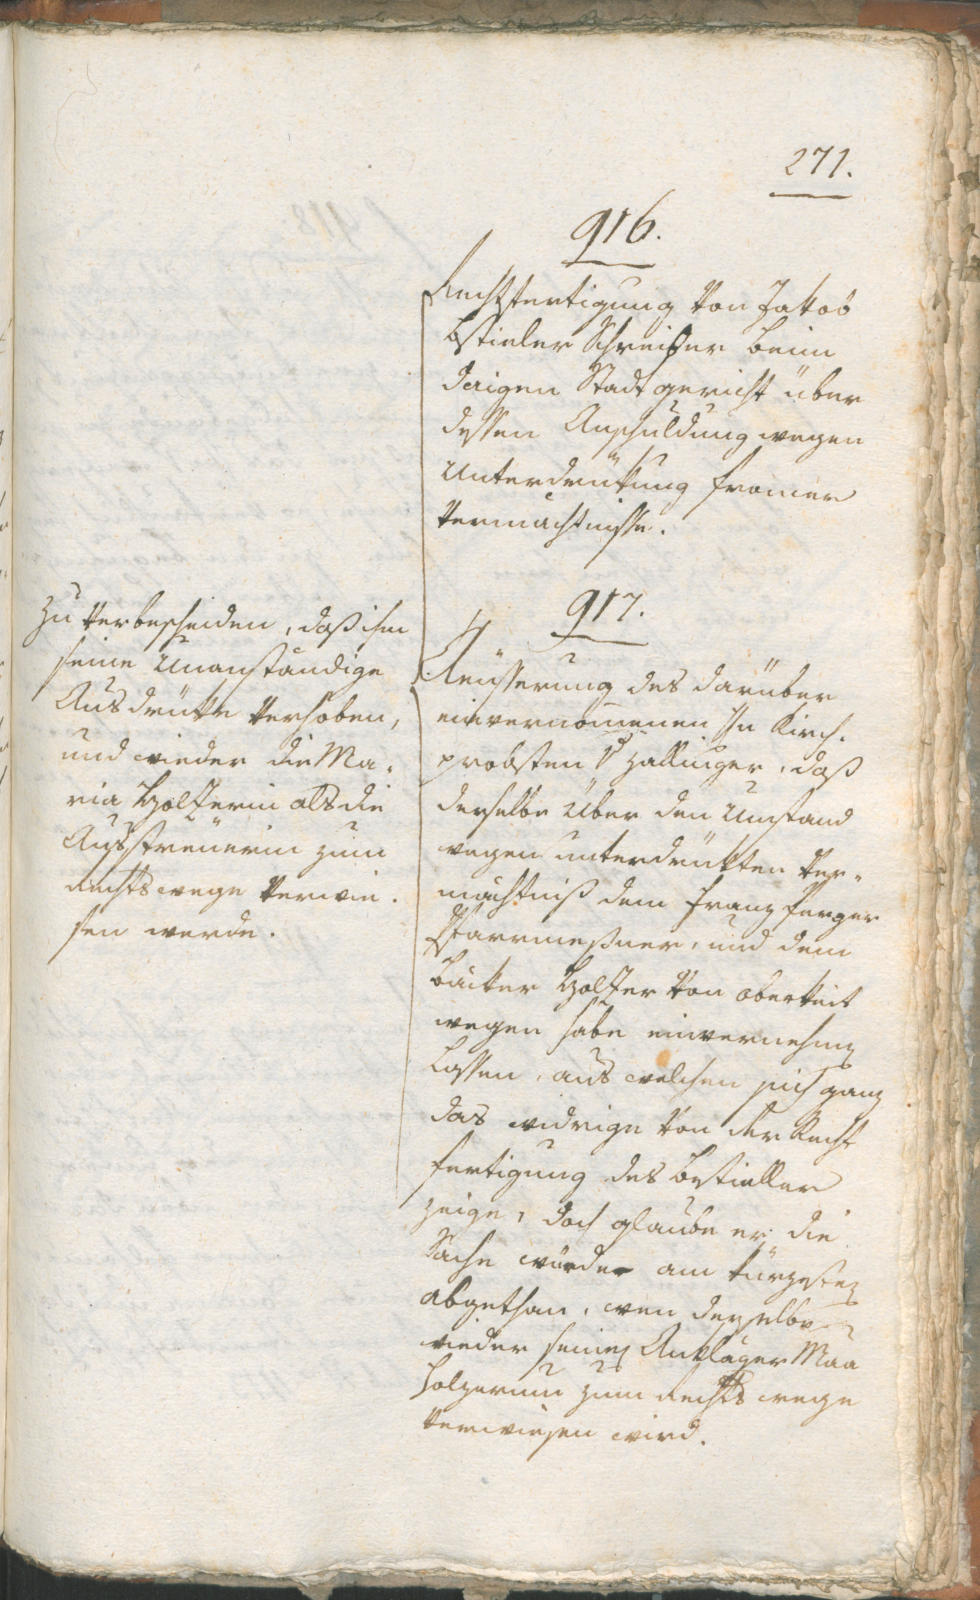 271.
916.
Rechtfertigung von Jakob
Bstieler Schreiber beim
daigen Stadtgericht über
dessen Anschuldung wegen
Unterdrükung fromer
Vermächtnisse.
917.
Aeüsserung des darüber
einvernomenen Hn Kirch-
probsten v Hallinger, daß
derselbe über den Umstand
wegen unterdrükten Ver-
mächtniß dem Franz Ferger
Pfarrmeßner, und dem
Bäcker Holzer von oberkeit
wegen habe einvernehmen
lassen, aus welchen sich ganz
das widrige von der Recht
fertigung des Bstieller
zeige, doch glaube er die
Sache würde am kürzesten
abgethan, wen derselbe
wieder seinen Ankläger Maa
Holzerinn zum Rechts wege
verwiesen wird.
Zu verbescheiden, daß ihm
seine Unanständige
Ausdrüke verhoben,
und wieder die Ma-
ria Holzerin als die
Ausstreüerin zum
Rechts wege verwie-
sen werde.